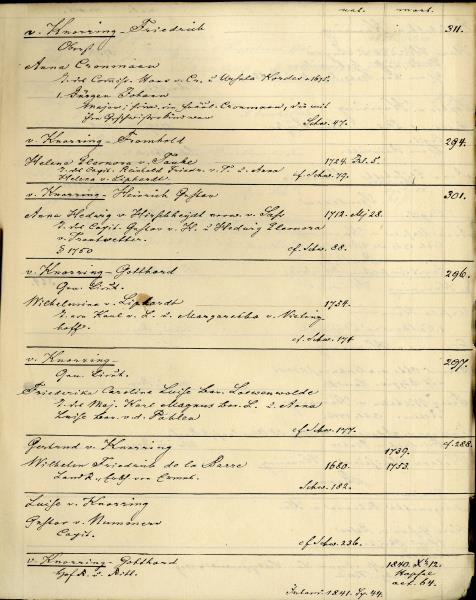 nat. mort.
v. Knorring - Friedrich 311.
Oberst
Anna Cronmann
T. des Commiss. Hans v. Cr. & Ursula Kordes
1. Jürgen Johann
Major,
Schw. 47.
v. Knorring - Fromhold 294.
Helena Eleonora v. Taube 1724. 5.
T. des Capit. Reinhold Friedr. v. T. & Anna
Helena v. Liphardt. cf. Schw. 79.
v. Knorring - Heinrich Gustav 301.
Anna Hedwig v. Hirschheydt verw. v. Sass 1712. Mj 28.
T. des Capit. Gustav v. H. & Hedwig Eleonora
v.
§ 1750 cf. Schw. 88.
v. Knorring - Gotthard 296.
Gen. Lieut.
Wilhelmina v. Liphardt 1754.
T. von Karl v. L. & Margaretha v. Vieting-
hoff.
cf. Schw. 174
v. Knorring - 297.
Gen. Lieut.
Friederike Caroline Luise Bar. Loewenwolde
T. des Maj. Karl Magnus Bar. L. & Anna
Luise Bar. v. d. Pahlen
cf. Schw. 177.
Gertrud v. Knorring 1739. cf. 288.
Wilhelm Friedrich de la Barre 1680. 1753.
Landr.,
Schw. 182.
Luise v. Knorring
Gustav v. Nummers
Capit.
cf. Schw. 236.
v. Knorring - Gotthard 1840. Xbr 12.
Hofr. & Ritt. Hapsal
aet. 64.
1841. p. 44.